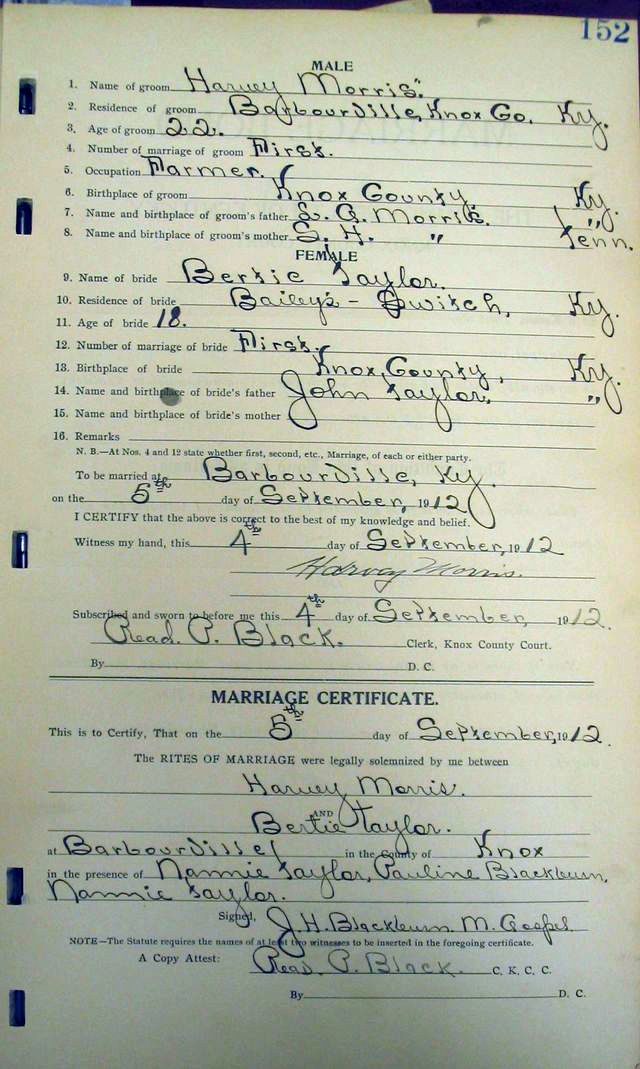 152
MALE
1. Name of groom Harvey Morris.
2. Residence of groom Barbourville, Knox Co. Ky.
3. Age of groom 22.
4. Number of marriage of groom First.
5. Occupation Farmer.
6. Birthplace of groom Knox County, Ky.
7. Name and birthplace of groom's father Morris. "
8. Name and birthplace of groom's mother S. H. " Tenn.
FEMALE
9. Name of bride Bertie Taylor.
10. Residence of bride Bailey's - Switch, Ky.
11. Age of bride 18.
12. Number of marriage of bride First.
13. Birthplace of bride Knox County, Ky.
14. Name and birthplace of bride's father John Taylor, "
15. Name and birthplace of bride's mother
16. Remarks
N. B.—At Nos. 4 and 12 state whether first, second, etc., Marriage, of each or either party.
To be married at Barbourville, Ky.
on the 5th day of September, 1912
I CERTIFY that the above is correct to the best of my knowledge and belief.
Witness my hand, this 4th day of September, 1912
Harvey Morris.
Subscribed and sworn to before me this 4th day of September, 1912.
Read. P. Black. Clerk, Knox County Court.
By D. C.
MARRIAGE CERTIFICATE.
This is to Certify, That on the 5th day of September, 1912.
The RITES OF MARRIAGE were legally solemnized by me between
Harvey Morris.
AND
Bertie Taylor.
at Barbourville in the County of Knox
in the presence of Nannie Taylor, Pauline Blackburn,
Nannie Taylor.
Signed, J. H. Blackburn M. Gospel
NOTE—The Statute requires the names of at least two witnesses to be inserted in the foregoing certificate.
A Copy Attest: Read. P. Black. C. K. C. C.
By D. C.